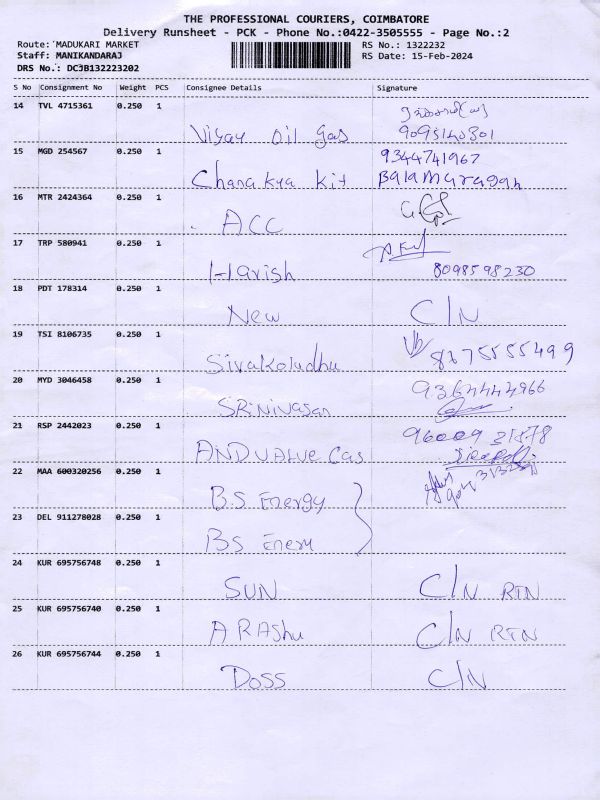 THE PROFESSIONAL COURIERS, COIMBATORE
Delivery Runsheet - PCK - Phone No.:0422-3505555 - Page No.:2
Route: MADUKARI MARKET RS No.: 1322232
Staff: MANIKANDARAJ RS Date: 15-Feb-2024
DRS No.: DCJB132223202
S No Consignment No Weight PCS Consignee Details Signature
14 TVL 4715361 0.250 1
Vijay oil gas 9095140301
15 MGD 254567 0.250 1 9344741967
Chanakya Kit Balamuragan
16 MTR 2424364 0.250 1
ACC
17 TRP 580941 0.250 1
Harish 8098598230
18 PDT 178314 0.250 1
New C/N
19 TSI 8106735 0.250 1
Sivakoludhu 8675555499
20 MYD 3046458 0.250 1 9364444966
SRiNivasan
21 RSP 2442023 0.250 1 9600931878
AND VALVE Gas
22 MAA 600320256 0.250 1
B.S Energy
23 DEL 911278028 0.250 1
BS Energy
24 KUR 695756748 0.250 1
SUN C/N RTN
25 KUR 695756740 0.250 1
ARAShu C/N RTN
26 KUR 695756744 0.250 1
Doss C/N